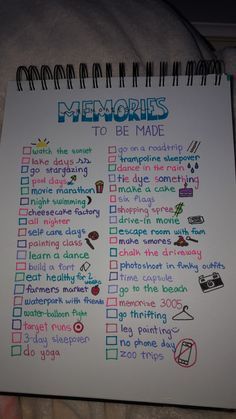 MEMORIES
TO BE MADE
watch the sunset
lake days
go stargazing
pool days
movie marathon
night swimming
cheesecake factory
all nighter
self care days
painting class
learn a dance
build a fort
eat healthy for 2 weeks
farmers market
waterpark with friends
water-balloon fight
target runs
3-day sleepover
do yoga
go on a roadtrip
trampoline sleepover
dance in the rain
tie dye something
make a cake
six flags
shopping spree
drive-in movie
escape room with fam
make smores
chalk the driveway
photoshoot in funky outfits
time capsule
go to the beach
memorize 3005
go thrifting
leg painting
no phone day
zoo trips